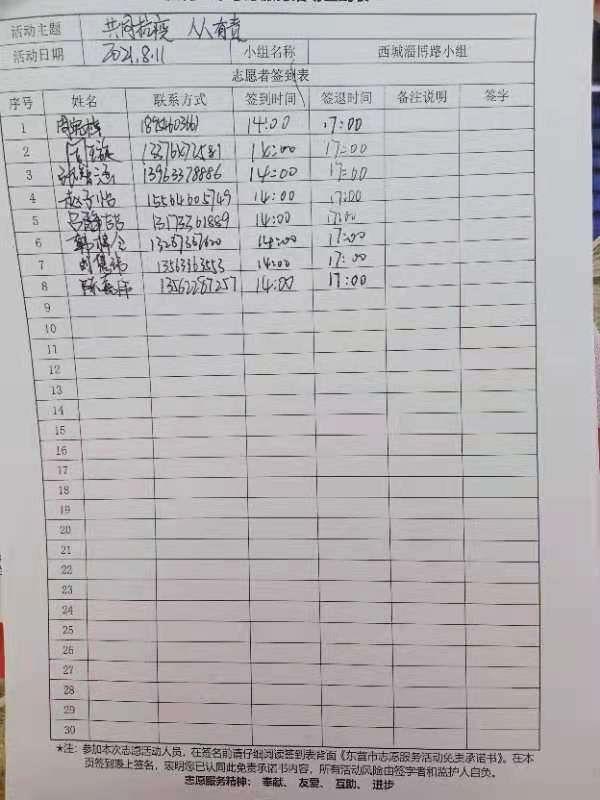 活动主题 共同抗疫 人人有责
活动日期 2021.8.11 小组名称 西城淄博路小组
志愿者签到表
序号 姓名 联系方式 签到时间 签退时间 备注说明 签字
1 14:00 17:00
2 14:00 17:00
3 13963378886 14:00 17:00
4 赵子怡 15564605749 14:00 17:00
5 13173361889 14:00 17:00
6 14:00 17:00
7 13563363553 14:00 17:00
8 13562287257 14:00 17:00
9
10
11
12
13
14
15
16
17
18
19
20
21
22
23
24
25
26
27
28
29
30
*注:参加本次志愿活动人员,在签名前请仔细阅读签到表背面《东营市志愿服务活动免责承诺书》。在本
页签到表上签名,表明您已认同此免责承诺书内容,所有活动风险由签字者和监护人自负。
志愿服务精神: 奉献、 友爱、 互助、 进步